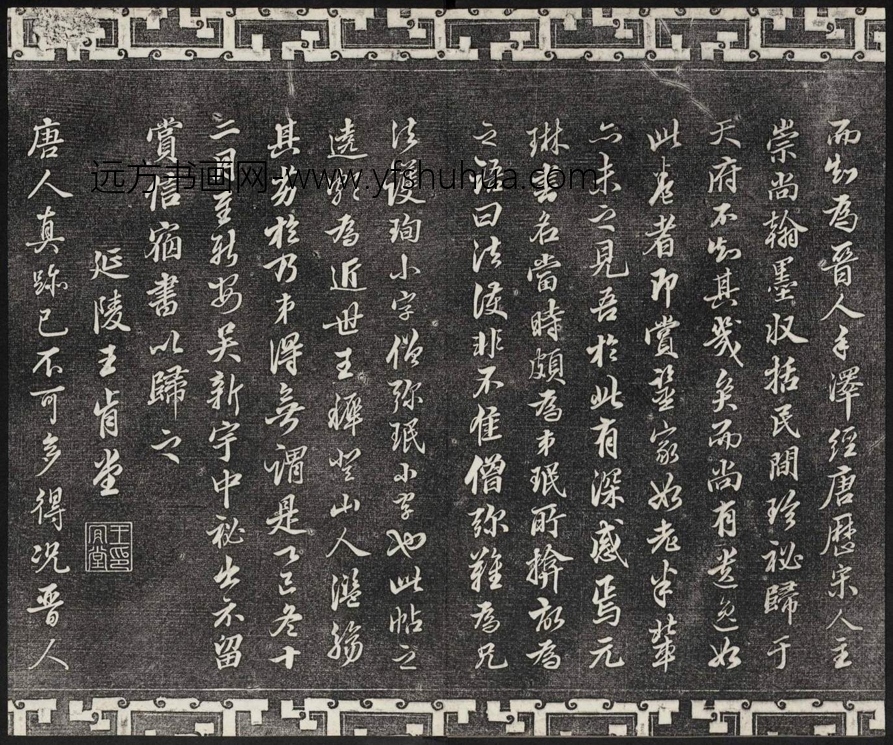 而知為晉人手澤經唐歷宋人主
崇尚翰墨收括民間珍祕歸于
天府不知其幾矣而尚有遺逸如
此卷者即賞鑒家如老米輩
亦未之見吾於此有深感焉元
琳書名當時頗為弟珉所揜故為
之語曰法護非不佳僧彌難為兄
法護珣小字僧彌珉小字也此帖之
為近世王穉登山人濫觴
其劣於乃弟得無謂是丁巳冬十
二月至新安吳新宇中祕出示留
賞信宿書以歸之
延陵王肯堂
王肯堂印
唐人真跡已不可多得況晉人
远方书画网-www.yfshuhua.com